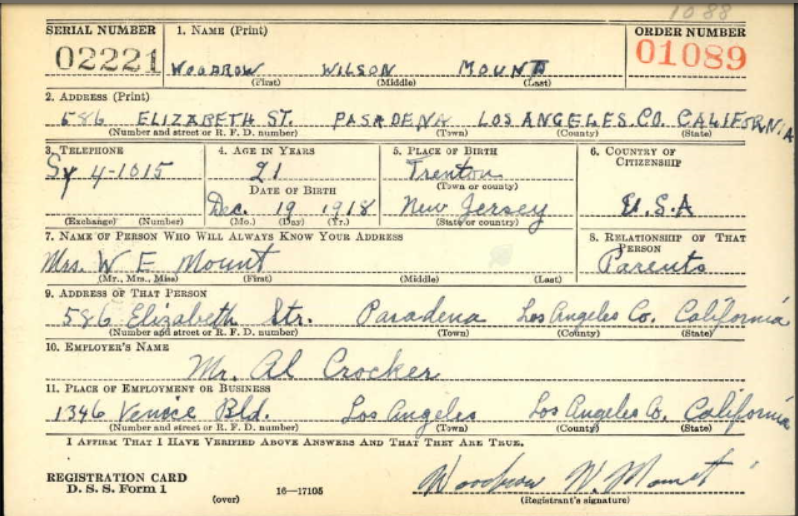 1088
SERIAL NUMBER 1. NAME (Print) ORDER NUMBER
02221 WOODROW WILSON MOUNT 01089
(First) (Middle) (Last)
2. ADDRESS (Print)
586 ELIZABETH ST. PASADENA LOS ANGELES. CO. CALIFORNIA
(Number and street or R. F. D. number) (Town) (County) (State)
3. TELEPHONE 4. AGE IN YEARS 5. PLACE OF BIRTH 6. COUNTRY OF CITIZENSHIP
Sy 4-1015 21 Trenton
DATE OF BIRTH (Town or county)
Dec. 19 1918 New Jersey U.S.A
(Exchange) (Number) (Mo.) (Day) (Yr.) (State or country)
7. NAME OF PERSON WHO WILL ALWAYS KNOW YOUR ADDRESS 8. RELATIONSHIP OF THAT PERSON
Mrs. W E Mount Parents
(Mr., Mrs., Miss) (First) (Middle) (Last)
9. ADDRESS OF THAT PERSON
586 Elizabeth Str. Pasadena Los Angeles Co. California
(Number and street or R. F. D. number) (Town) (County) (State)
10. EMPLOYER'S NAME
Mr. Al Crocker
11. PLACE OF EMPLOYMENT OR BUSINESS
1346 Venice Bld. Los Angeles Los Angeles Co. California
(Number and street or R. F. D. number) (Town) (County) (State)
I AFFIRM THAT I HAVE VERIFIED ABOVE ANSWERS AND THAT THEY ARE TRUE.
REGISTRATION CARD
D. S. S. Form 1 (over) 16—17105 Woodrow W. Mount
(Registrant's signature)